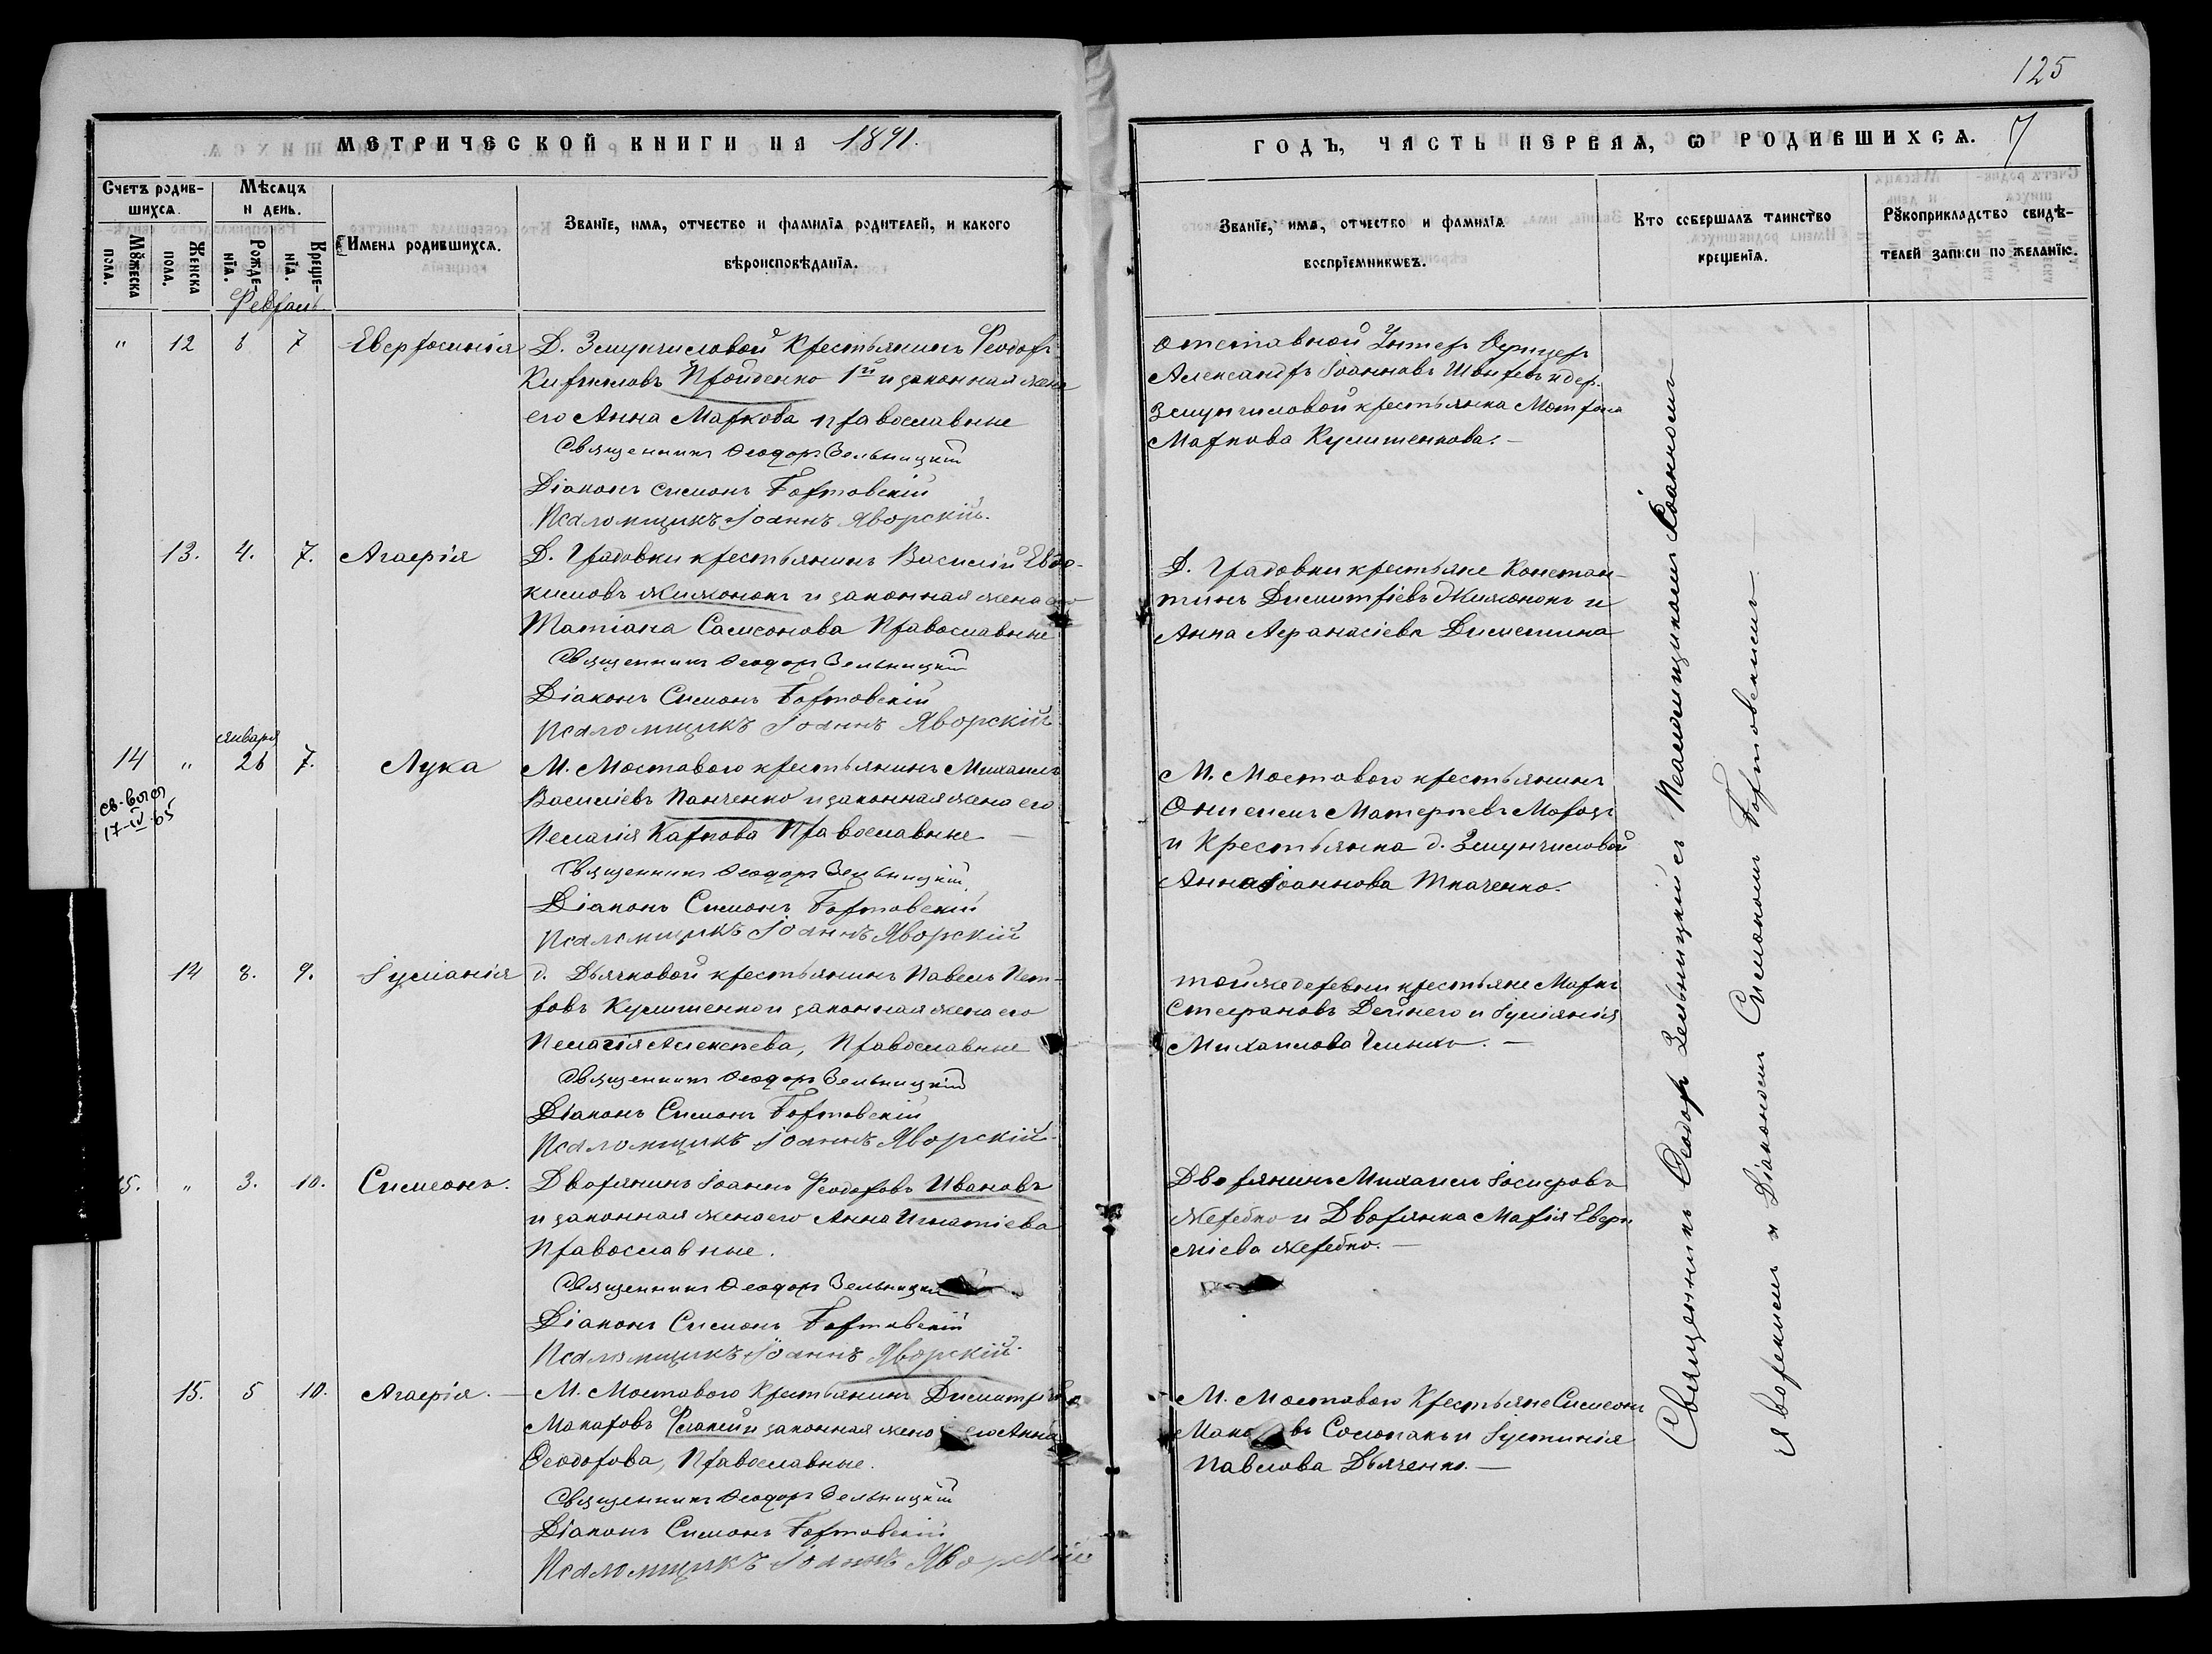 125
МЕТРИЧЕСКОЙ КНИГИ НА 1891.
ГОДЪ, ЧАСТЬ ПЕРВАЯ, Ѡ РОДИВШИХСѦ. 7
Счетъ родив-
шихсѧ.
Мѣсѧцъ
и день.
Мꙋжеска
пола.
Женска
пола.
Рожде-
нїѧ.
Креще-
нїѧ.
Имена родившихсѧ.
Званїе, имѧ, отчество и фамилїѧ родителей, и какого
вѣроисповѣданїѧ.
Званїе, имѧ, отчество и фамилїѧ
воспрїемникѡвъ.
Кто совершалъ таинство
крещенїѧ.
Рꙋкоприкладство свидѣ-
телей записи по желанїю.
Февраль
" 12 7 Евфросинія
Д. Змунчиловой Крестьянинъ Феодоръ
Кириловъ Пройденко 1й и законная жена
его Анна Маркова православные
Священникъ Ѳеодоръ Зельницкій
Діаконъ Симонъ Бортовскій
Псаломщикъ Іоаннъ Яворскій.
Отставной Унтеръ Офицеръ
Александръ Іоанновъ и дер.
Змунчиловой крестьянка Матрона
Маркова Кулишенкова. —
13. 4. 7. Агафія
Д. Градовки крестьянинъ Василій Евдо-
кимовъ Жижонокъ и законная жена его
Татіана Самсонова Православные
Священникъ Ѳеодоръ Зельницкій
Діаконъ Симонъ Бортовскій
Псаломщикъ Іоаннъ Яворскій
Д. Градовки крестьяне Констан-
тинъ Димитріевъ Жижонокъ и
Анна Афанасіева
января
14 " 26 7. Лука
св-во
17-IV-65
М. Мостоваго крестьянинъ Михаилъ
Василіевъ Панченко и законная жена его
Пелагія Карпова Православные —
Священникъ Ѳеодоръ Зельницкій
Діаконъ Симонъ Бортовскій
Псаломщикъ Іоаннъ Яворскій
М. Мостоваго крестьянинъ
Онисимъ Матереевъ Морозъ
и Крестьянка д. Змунчиловой
Анна Іоаннова Ткаченко.
14 8. 9. Іуліанія
д. Дьячковой крестьянинъ Павелъ Пет-
ровъ Кулишенко и законная жена его
Пелагія Алексѣева, Православные
Священникъ Ѳеодоръ Зельницкій
Діаконъ Симонъ Бортовскій
Псаломщикъ Іоаннъ Яворскій
той же деревни крестьяне Маркъ
Стефановъ Дейнего и Іуліанія
Михаилова —
15. " 3. 10. Симеонъ.
Дворянинъ Іоаннъ Феодоровъ Ивановъ
и законная жена его Анна Игнатіева
Православные.
Священникъ Ѳеодоръ Зельницкій
Діаконъ Симонъ Бортовскій
Псаломщикъ Іоаннъ Яворскій.
Дворянинъ Михаилъ Іосифовъ
Жеребко и Дворянка Марія Евфи
міева Жеребко. —
15. 5 10. Агафія. —
М. Мостоваго Крестьянинъ Димитрій
Макаровъ и законная жена его Анна
Ѳеодорова, Православные.
Священникъ Ѳеодоръ Зельницкій
Діаконъ Симонъ Бортовскій
Псаломщикъ Іоаннъ Яворскій
М. Мостоваго Крестьяне Симеонъ
Мака въ и Іустинія
Павлова Дьяченко. —
Священникъ Ѳеодоръ Зельницкій съ Псаломщикомъ Іоанномъ
Яворскимъ и Діакономъ Симономъ Бортовскимъ